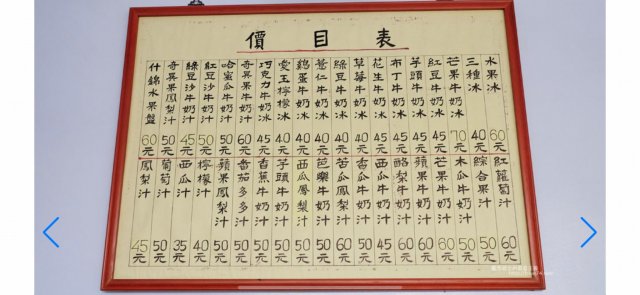 價目表
水果冰 60元
三種冰 40元
芒果牛奶冰 70元
紅豆牛奶冰 45元
芋頭牛奶冰 45元
布丁牛奶冰 45元
花生牛奶冰 45元
草莓牛奶冰 40元
綠豆牛奶冰 40元
薏仁牛奶冰 40元
雞蛋牛奶冰 40元
愛玉檸檬冰 40元
巧克力牛奶冰 45元
奇異果牛奶汁 60元
哈蜜瓜牛奶汁 50元
紅豆沙牛奶汁 50元
綠豆沙牛奶汁 45元
奇異果鳳梨汁 50元
什錦水果盤 60元
紅蘿蔔汁 60元
綜合果汁 50元
木瓜牛奶汁 50元
芒果牛奶汁 60元
蘋果牛奶汁 60元
酪梨牛奶汁 60元
西瓜牛奶汁 45元
香瓜牛奶汁 50元
苦瓜鳳梨汁 60元
芭樂牛奶汁 50元
西瓜鳳梨汁 50元
芋頭牛奶汁 50元
香蕉牛奶汁 50元
番茄多多汁 50元
蘋果鳳梨汁 50元
檸檬汁 40元
西瓜汁 35元
葡萄汁 50元
鳳梨汁 45元